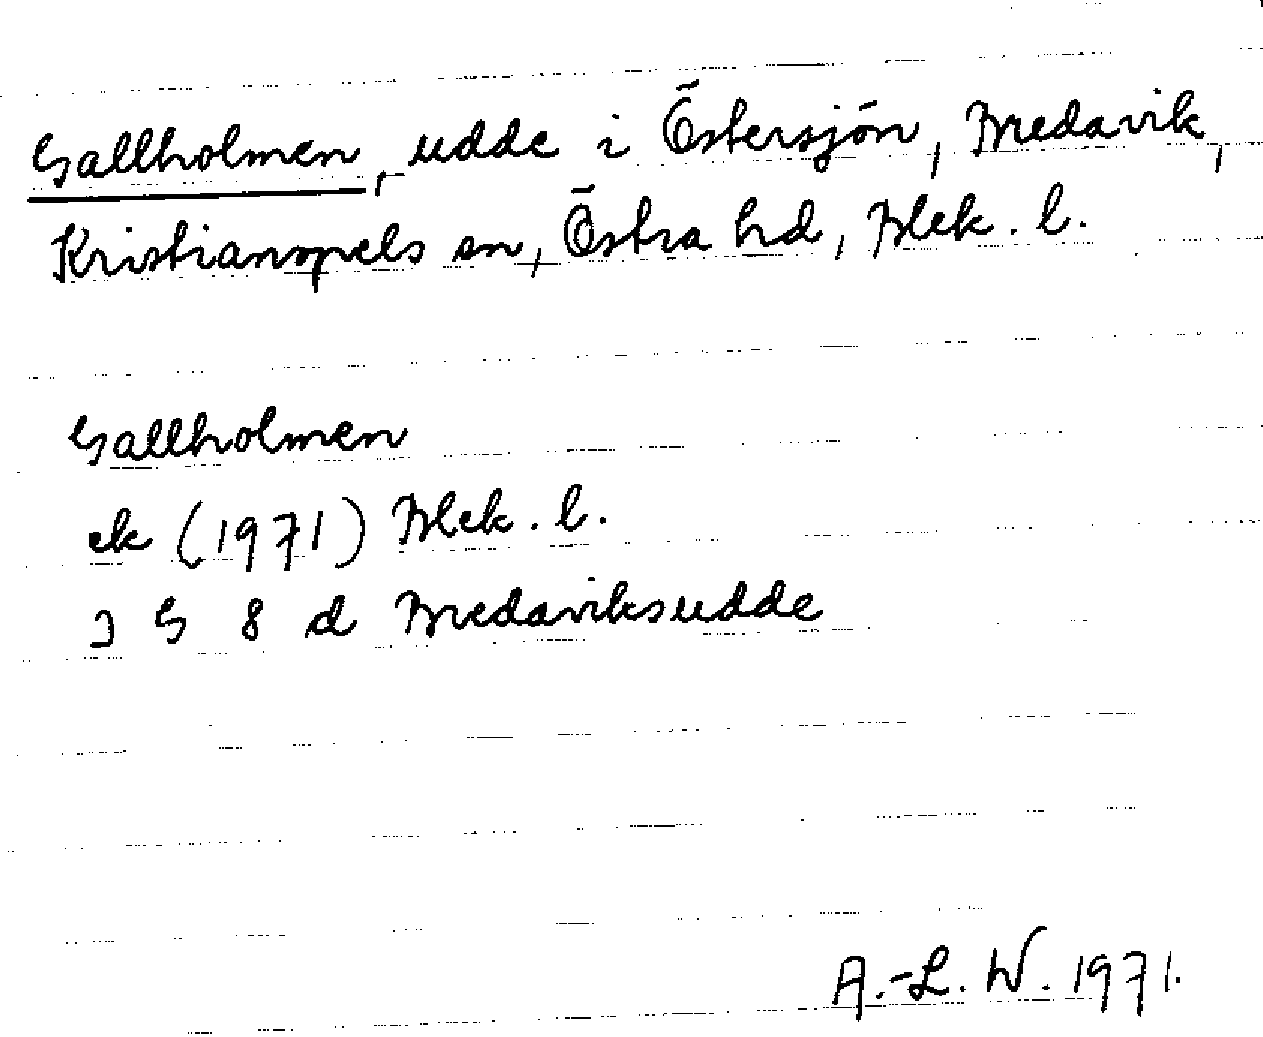 Gallholmen, udde i Östersjön, Bredavik,
Kristianopels sn, Östra hd, Blek. l.
Gallholmen
ek (1971) Blek. l.
3 G 8 d Bredaviksudde
A.-L. W. 1971.